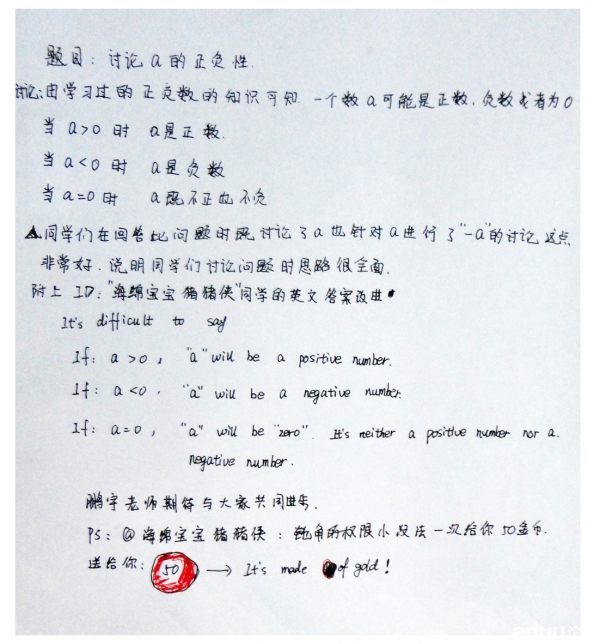 题目：讨论a的正负性.
讨论：由学习过的正负数的知识可知 一个数a可能是正数，负数或者为0
当 a>0 时 a是正数.
当 a<0 时 a是负数
当 a=0 时 a既不正也不负
▲同学们在回答此问题时既讨论了a也针对a进行了"-a"的讨论 这点
非常好. 说明同学们讨论问题时思路很全面.
附上 ID："海绵宝宝猪猪侠"同学的英文答案改进
It's difficult to say
If: a >0, "a" will be a positive number.
If: a <0. "a" will be a negative number.
If: a=0, "a" will be "zero". It's neither a positive number nor a.
negative number.
鹏宇老师期待与大家共同进步.
PS: @海绵宝宝猪猪侠：权限小没法一次给你50金币.
送给你: 50 → It's made of gold!